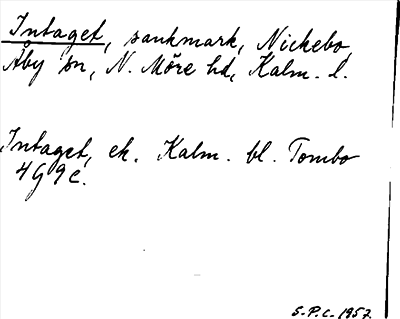 Intaget, sankmark, Nickebo,
Åby sn, N. Möre hd, Kalm. l.
Intaget, ek. Kalm. bl. Tombo
4G9c.
S.P.C. 1957.